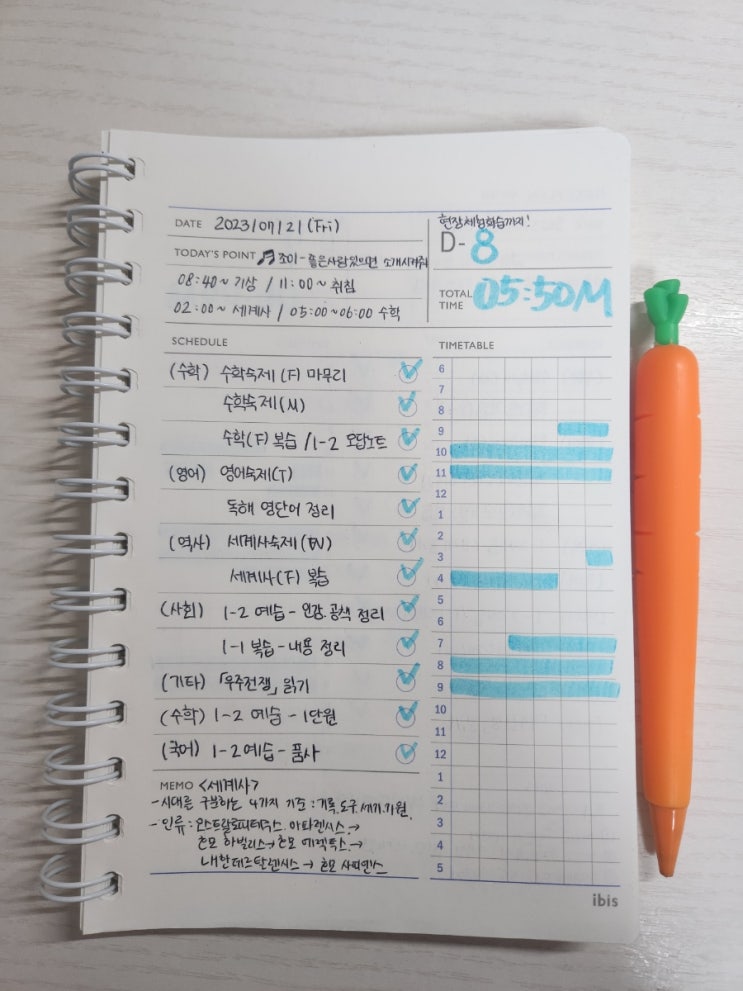 DATE 2023/07/21 (Fri)
현장체험학습까지!
D-8
TODAY'S POINT 조이-좋은사람있으면 소개시켜줘
08:40~ 기상 / 11:00~ 취침
02:00~ 세계사 / 05:00~06:00 수학
TOTAL TIME 05:50M
SCHEDULE
(수학) 수학숙제(F) 마무리
수학숙제(M)
수학(F) 복습 / 1-2 오답노트
(영어) 영어숙제(T)
독해 영단어 정리
(역사) 세계사숙제(W)
세계사(F) 복습
(사회) 1-2 예습 - 인강.공책 정리
1-1 복습 - 내용 정리
(기타) 「우주전쟁」 읽기
(수학) 1-2 예습 - 1단원
(국어) 1-2 예습 - 품사
TIMETABLE
6
7
8
9
10
11
12
1
2
3
4
5
6
7
8
9
10
11
12
1
2
3
4
5
MEMO <세계사>
- 시대를 구분하는 4가지 기준 : 기록.도구.세기.기원.
- 인류 : 오스트랄로피테쿠스.아파렌시스. →
호모 하빌리스 → 호모 에렉투스. →
네안데르탈렌시스 → 호모 사피엔스
ibis